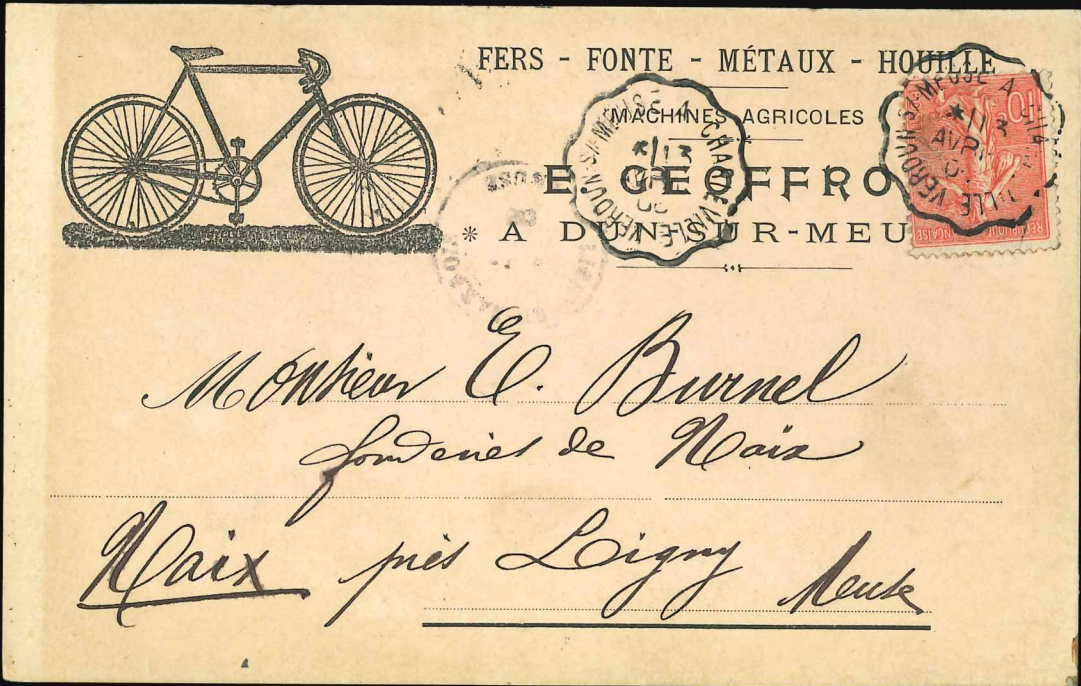 FERS - FONTE - MÉTAUX - HOUILLE
MACHINES AGRICOLES
E. GEOFFRO
* A DUN-SUR-MEU
VERDUN-S/-MEUSE A CHARLEVILLE
*/13
VERDUN S/-MEUSE A
*/13
AVR
10
RÉPUBLIQUE FRANÇAISE
Monsieur E. Burnel
fonderies de Naix
Naix près Ligny
Meuse